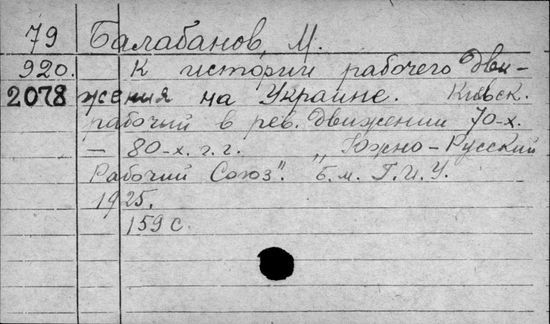 79 Балабанов, М.
920. К истории рабочего дви-
2078 жения на Украине. Киевск.
рабочий в рев. движении 70-х.
— 80-х. г.г. „Южно-Русский
Рабочий Союз". Б.м. Г.И.У.
1925.
159 с.